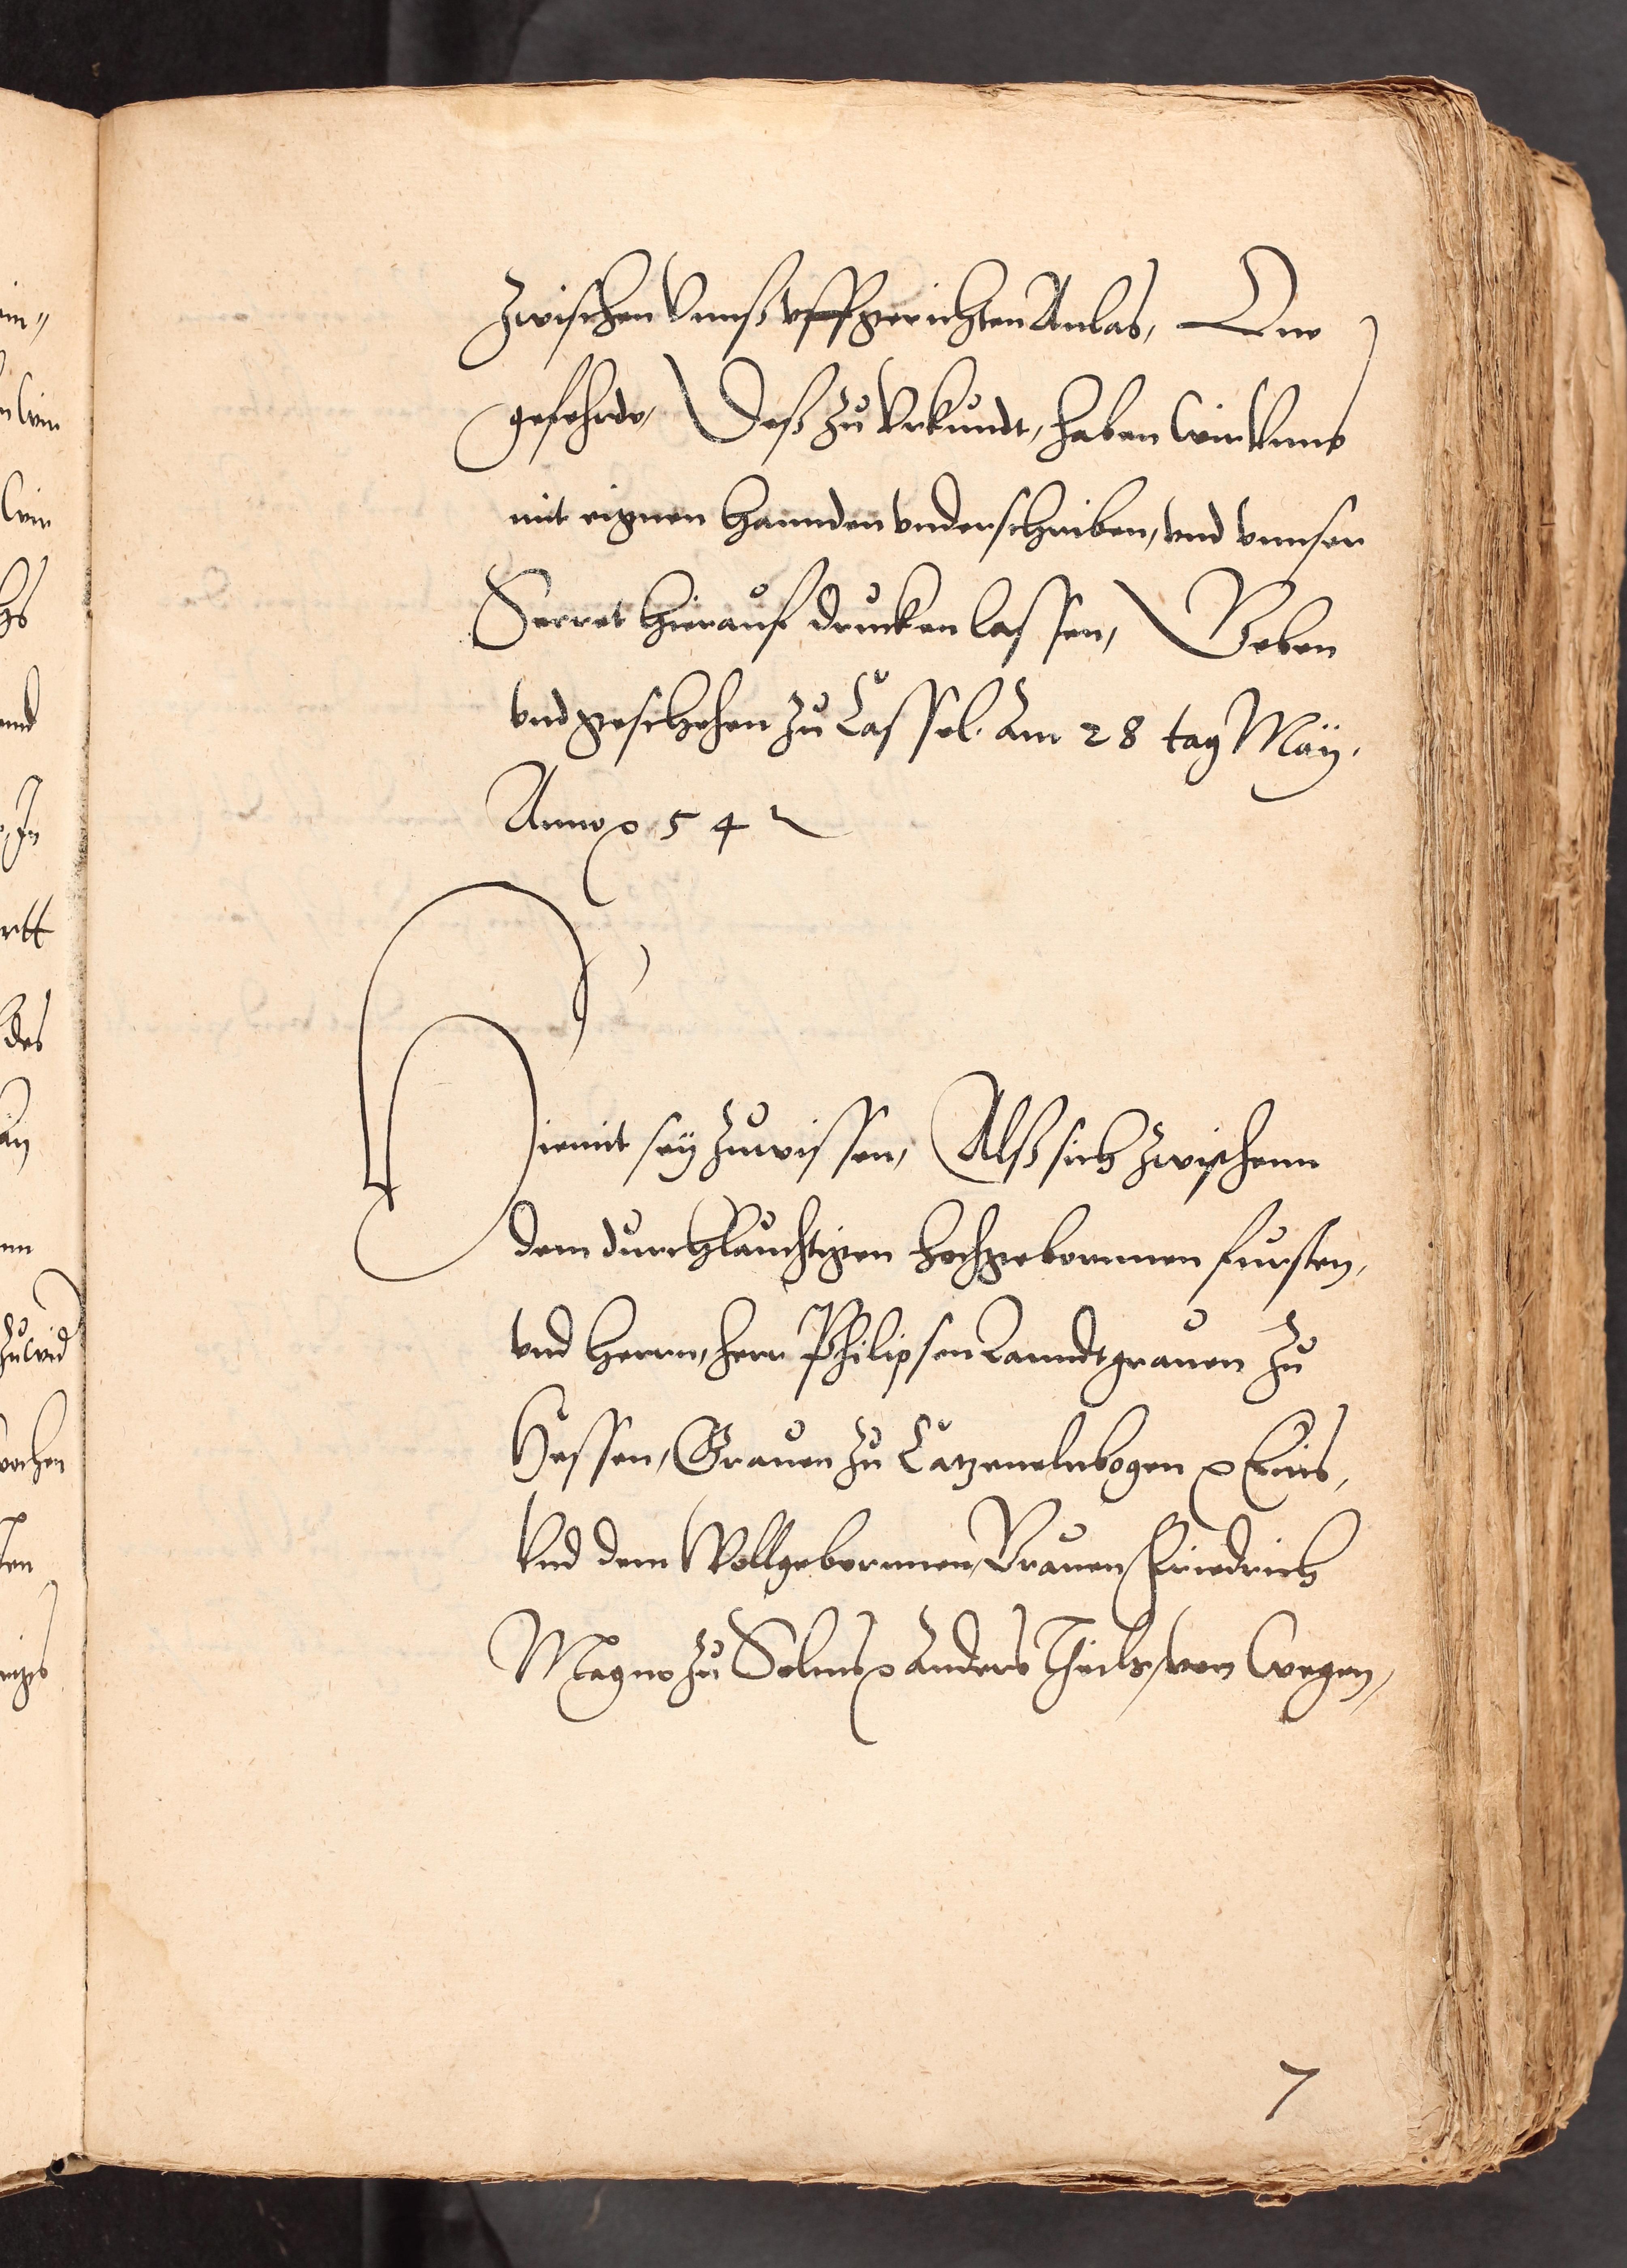 zwischen Vnnß vffgerichten Anlas, One
geferde, Deß zu Vrkundt, haben wir Vnns
mit eignen Hannden vnderschriben, vnd vnnser
Secret hierauf drucken lassen, Geben
vnd geschehen zu Cassel. Am 28 tag Maÿ.
Anno ꝛc 54
Hiemit seÿ zuwissen, Alß sich zwischenn
dem durchlauchtigen hochgebornnen fursten,
vnd Herrn, herr Philipsen Lanndtgrauen zu
Hessen, Grauen zu Catzenelnbogen ꝛc Eins,
Vnd dem Wollgebornnen Grauen Friedrich
Magno zu Solms ꝛc Anders Theils, von wegen,
7